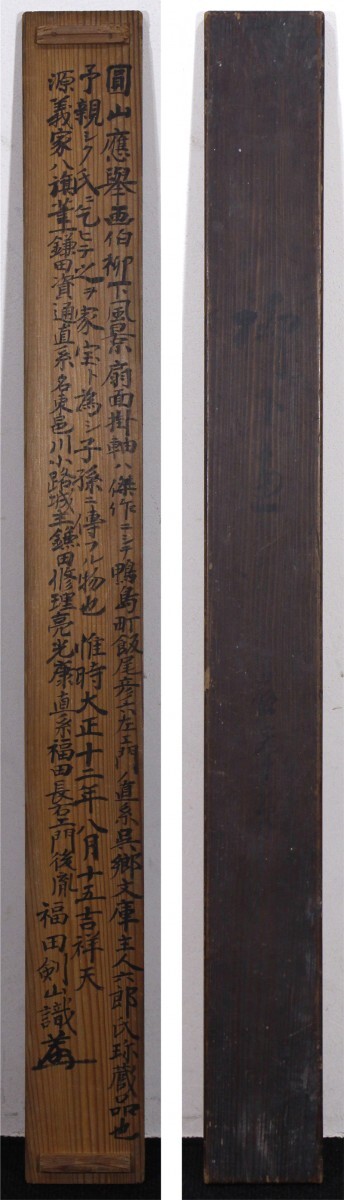 圓山應擧画伯柳下風景扇面掛軸ハ傑作ニシテ鴨島町飯尾彦六左エ門ノ直系呉郷文庫主人六郎氏珍蔵品也
予親シク氏ニ乞ヒテ之ヲ家宝ト為シ子孫ニ傳フル物也 惟時大正十二年八月十五吉祥天
源義家八旗筆鎌田資通直系名東邑川小路城主鎌田修理亮光康直系福田長右エ門後胤 福田剣山識